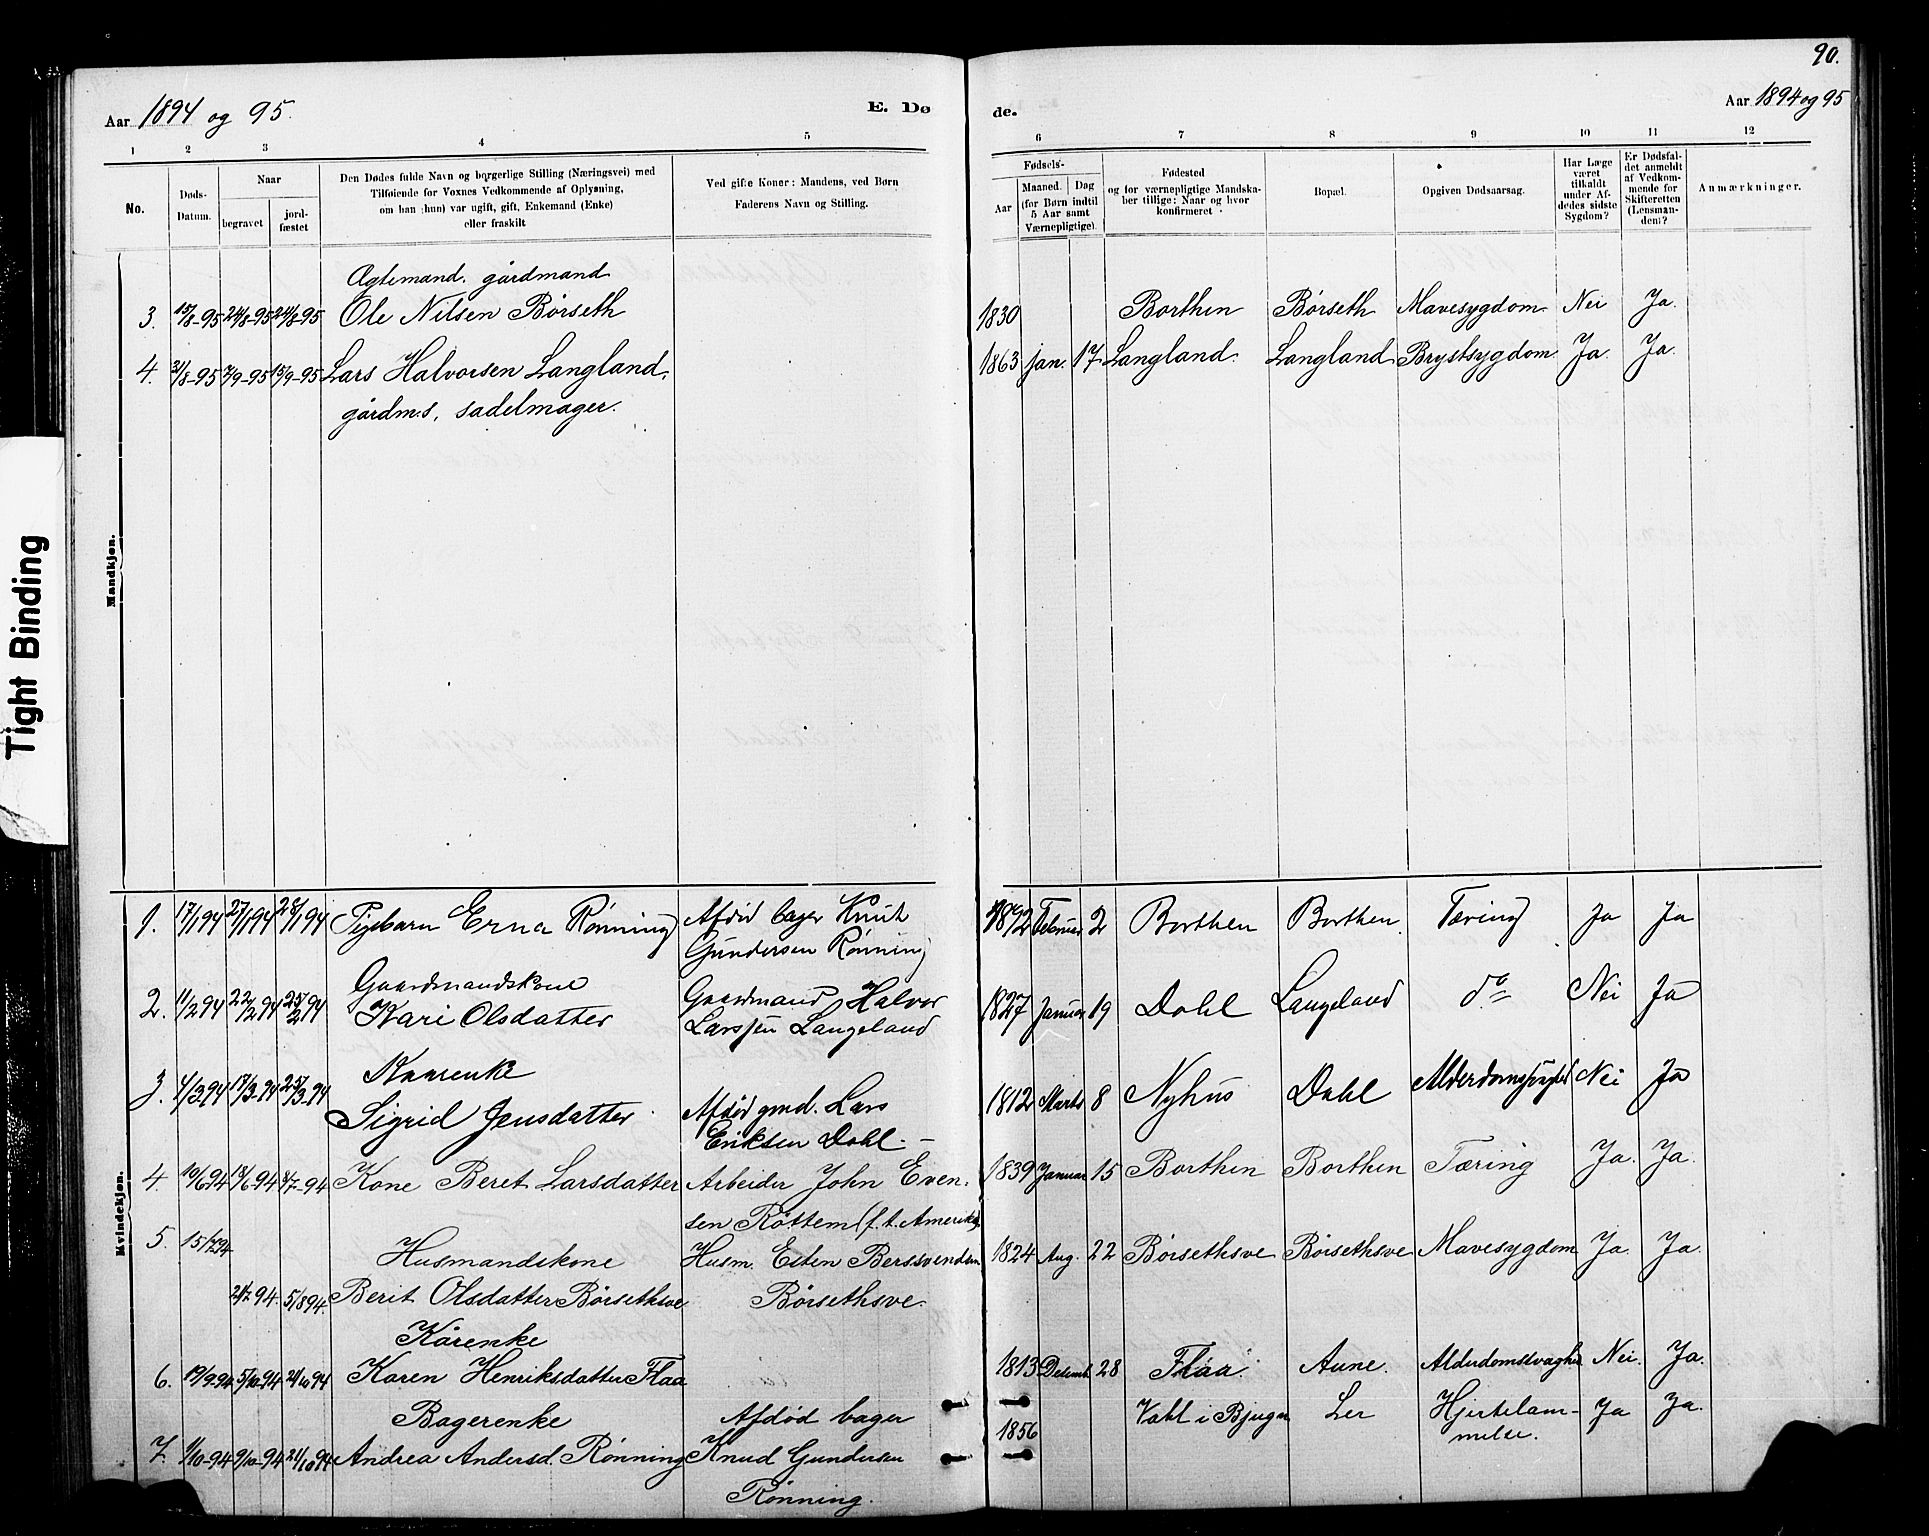 90.
Aar 1894 og 95.
E. Dø
de.
Aar 1894 og 95
1 2 3 4 5
6 7 8 9 10 11 12
No.
Døds-
Datum.
Naar
begravet
jord-
fæstet
Den Dødes fulde Navn og borgerlige Stilling (Næringsvei) med
Tilføiende for Voxnes Vedkommende af Oplysning,
om han (hun) var ugift, gift, Enkemand (Enke)
eller fraskilt
Ved gifte Koner: Mandens, ved Børn
Faderens Navn og Stilling.
Fødsels-
Aar
Maaned.
Dag
(for Børn indtil
5 Aar samt
Værnepligtige).
Fødested
og for værnepligtige Mandska-
ber tillige: Naar og hvor
konfirmeret
Bopæl.
Opgiven Dødsaarsag.
Har Læge
været
tilkaldt
under Af-
dødes sidste
Sygdom?
Er Dødsfal-
det anmeldt
af Vedkom-
mende for
Skifteretten
(Lensman-
den)?
Anmærkninger.
Mandkjøn.
Ægtemand. gårdmand
3. 24/8-95 24/8-95 Ole Nilsen Børseth 1830 Borthen Børseth Mavesygdom Nei Ja.
4. 31/8-95 7/9-95 15/9-95 Lars Halvorsen Langland, 1863 jan. 17 Langland. Langland Brystsygdom Ja. Ja.
gårdm.s, sadelmager.
Kvindekjøn.
1. 17/1 94 27/1 94 28/1 94 Pigebarn Erna Rønning Afdød bager Knut 1892 Februar 2 Borthen Borthen Tæring Ja Ja
Gundersen Rønning
Gaardmandskone
2. 11/2 94 22/2 94 25/2 94 Kari Olsdatter Gaardmand Halvor 1827 Januar 19 Dahl Langeland do Nei Ja
Larssen Langeland
Kaarenke
3. 4/3 94 17/3-94 25/3-94 Sigrid Jensdatter Afdød gmd. Lars 1812 Marts 8 Nyhus Dahl Nei Ja
Eriksen Dahl. —
4. 10/6 94 18/6-94 Kone Beret Larsdatter Arbeider John Even- 1839 Januar 15 Borthen Borthen Tæring Ja. Ja.
sen Røttem (f.t. Amerika)
5. 15/7 94 Husmandskone Husm. Esten Berssvendsen 1824 Aug. 22 Børsethsve Børsethsve Mavesygdom Ja. Ja.
21/7 94. 5/8 94. Berit Olsdatter Børsethsve Børsethsve.
Kårenke
6. 19/9-94 5/10-94 21/10 94 Karen Henriksdatter Flaa 1813 Desemb. 28 Flaa. Aune. Alderdomssvaghed Nei. Ja.
Bagerenke Afdød bager 1856 Vahl i Bjugn Ler Hjertelam- Ja Ja.
melse.
7. 1/10-94 9/10-94 21/10 94 Andrea Andersd. Rønning Knud Gundersen
Rønning.
Tight Binding